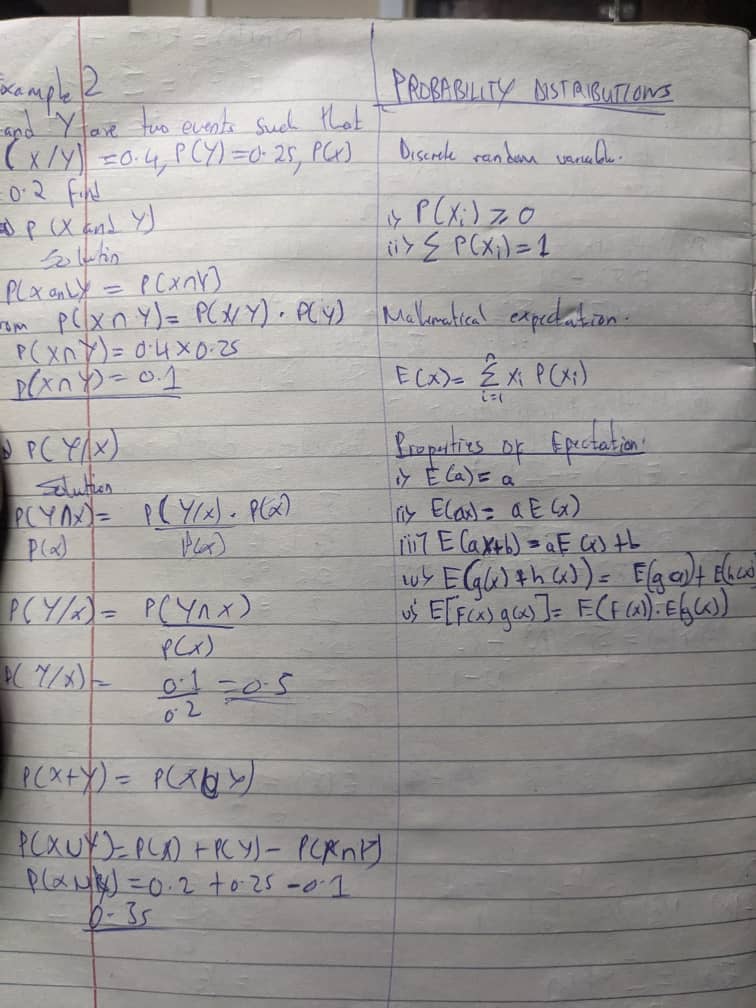 xample 2
and Y are two events such that
(X/Y) = 0.4, P(Y) = 0.25, P(X)
0.2 find
P(X and Y)
Solutin
P(X only = P(X∩Y)
rom P(X∩Y) = P(X/Y) . P(Y)
P(X∩Y) = 0.4 x 0.25
P(X∩Y) = 0.1
) P(Y/X)
Solution
P(Y∩X) = P(Y/X) . P(X)
P(X) P(X)
P(Y/X) = P(Y∩X)
P(X)
P(Y/X) = 0.1 = 0.5
0.2
P(X+Y) = P(X Y)
P(X∪Y) = P(X) + P(Y) - P(X∩Y)
P(X∪Y) = 0.2 + 0.25 - 0.1
0.35
PROBABILITY DISTRIBUTIONS
Discrete random variable.
i> P(Xi) ≥ 0
ii> Σ P(Xi) = 1
Mathematical expectation.
n
E(X) = Σ Xi P(Xi)
i=1
Properties of Epectation.
i> E(a) = a
ii> E(ax) = a E(X)
iii> E(ax+b) = aE(X) + b
iv> E(g(x) + h(x)) = E(g(x)) + E(h(x)
v> E[F(x) g(x)] = E(F(x)) . E(g(x))